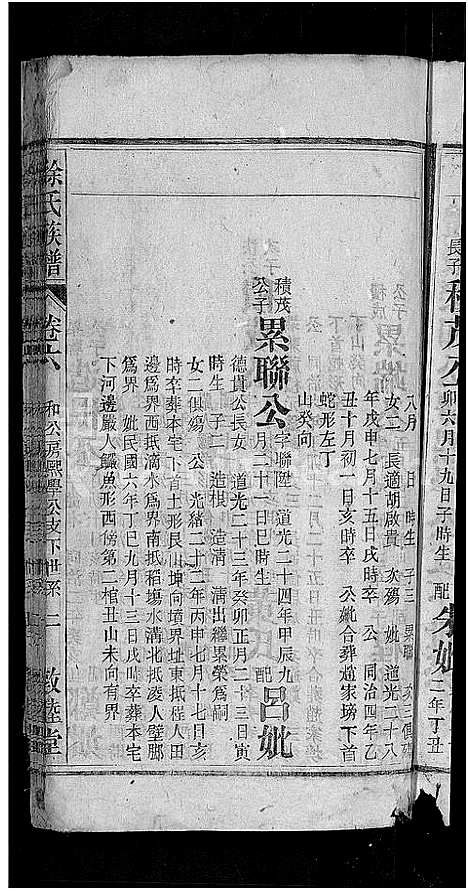 長子積茂公
卯六月十九日子時生 配朱妣
二年丁丑
八月 日 時生 子三 累聯 次三俱殤
女二 長適胡啟貴 次殤 妣 道光二十八
年戊申七月十五日戌時卒 公 同治四年乙
丑十月初一日亥時卒 公妣合葬趙家塝下首
蛇形左丁
山癸向
積茂公子 累聯公 字聯陞 道光二十四年甲辰九
月二十一日巳時生 配呂妣
德貴公長女 道光二十三年癸卯正月二十三日寅
時生 子二 造根 造清 清出繼累榮爲嗣
女二俱殤 公 光緒二十二年丙申七月十七日亥
時卒葬本宅下首土形艮山坤向墳界址東抵程人田
邊爲界西抵滴水爲界南抵稻塲水溝北抵凌人壁脚
爲界 妣民國六年丁巳九月十三日戌時卒葬本宅
下河邊嚴人鱷魚形西傍第二棺丑山未向有界
徐氏族譜 卷六 和公房熙舉公支下世系 二 敦睦堂